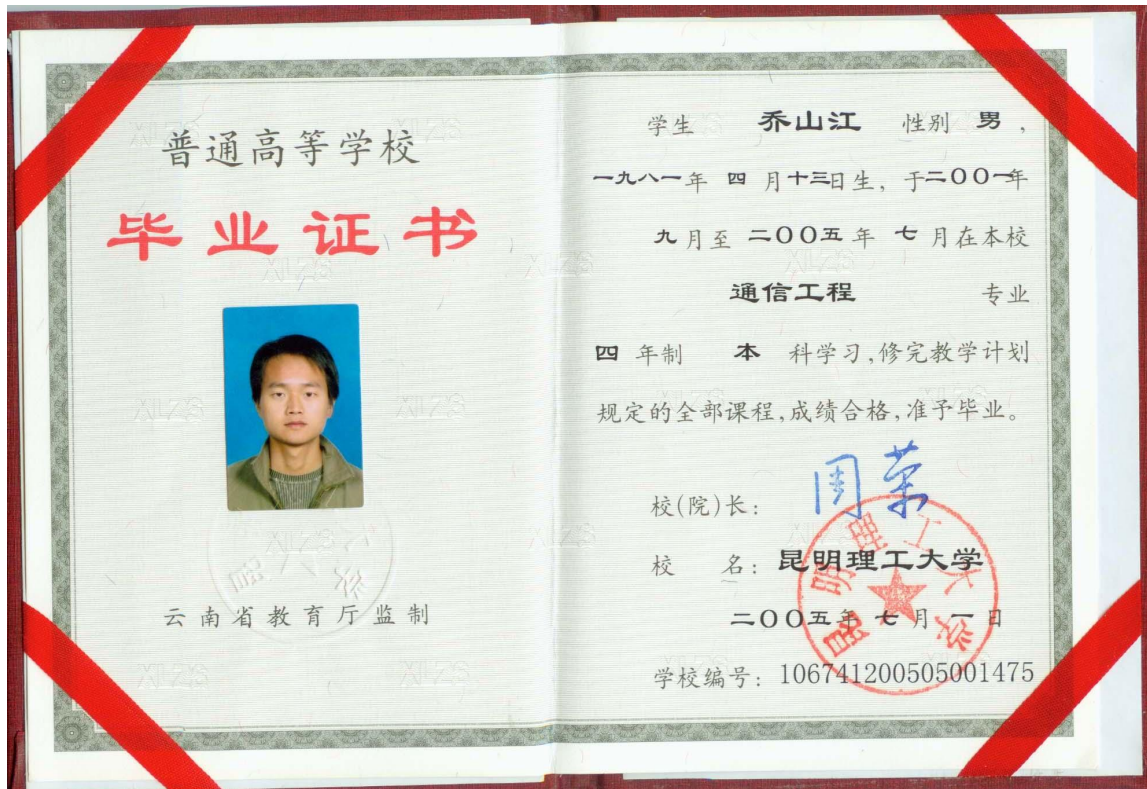 普通高等学校
毕业证书
云南省教育厅监制
学生 乔山江 性别 男，
一九八一年 四 月十三日生，于二00一年
九月至 二00五年 七 月在本校
通信工程 专业
四 年制 本 科学习，修完教学计划
规定的全部课程，成绩合格，准予毕业。
校(院)长： 周荣
校 名：昆明理工大学
二00五年 七 月 一 日
学校编号：106741200505001475
昆明理工大学
XLZS